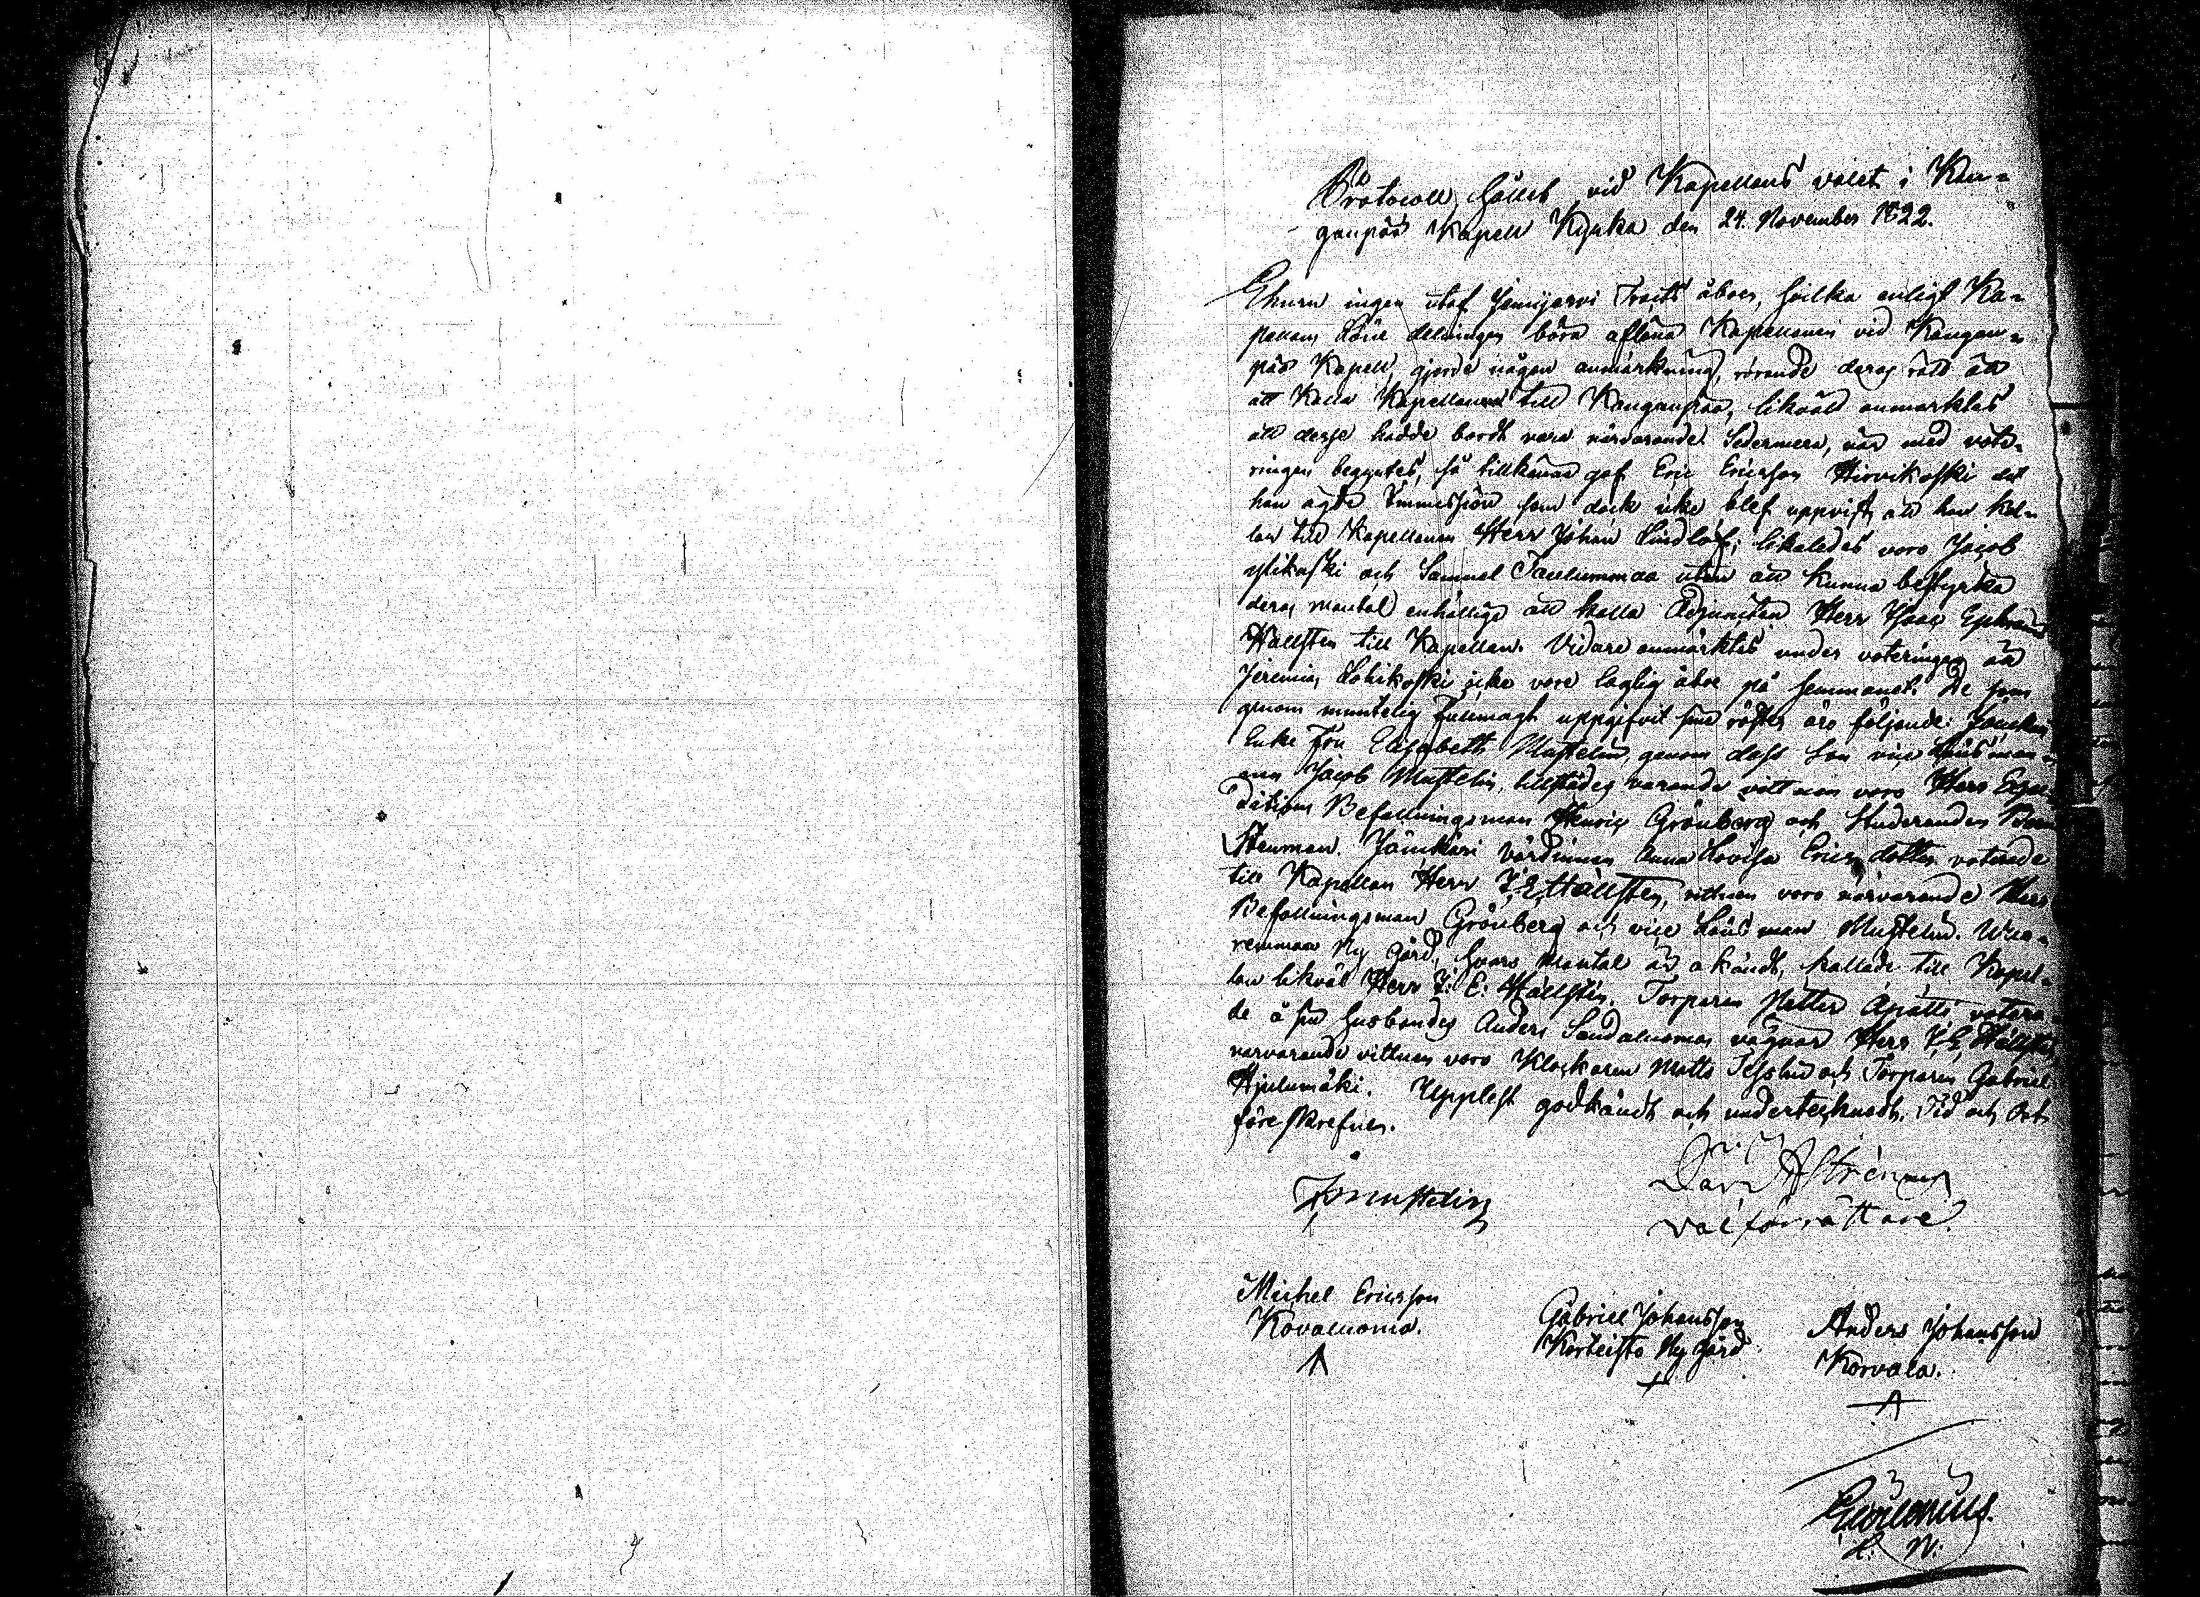 Protocoll hållet vid Kapellans valet i Kan-
ganpää Kapell Kyrka den 24. November 1822.
Ehuru ingen utaf Jämijärvi Tracts åboer, hvilka enligt Ka-
pellans Löne delningen böra aflöna Kapellanen vid Kangan-
pää Kapell, gjorde någon anmärkning, rörande deras rätt att
att Kalla Kapellanen till Kanganpää, likväl anmärktes
att desse hadde bordt vara närvarande. Sedermera, när med vote-
ringen begyntes, så tillkänna gaf Eric Ericsson Hirvikoski att
han ägde Immission som dock icke blef uppvist, att han kal-
lar till Kapellanen Herr Johan Lindlöf; likaledes voro Jacob
Ylikoski och Samuel Taulunmaa utan att kunna bestyrka
deras mantal enhällige att kalla Adjuncten Herr Isaac Ephraim
Hällsten till Kapellan. Vidare anmärktes under voteringen att
Jeremias Lohikoski icke vore laglig åboe på hemmanet. De som
genom muntelig fullmagt uppgifvit sine röster äro följande:
Enke Fru Elisabeth Mustelin, genom dess Son vice Länsman-
nen Jacob Mustelin, tillstädes varande vittnen voro Herr Expe-
ditions Befallningsman Henric Grönberg och Studeranden
Stenman. Jämikäri värdinnan Anna Lovisa Ericsdotter voterade
till Kapellan Herr I. E. Hällsten, vittnen voro närvarande Herr
Befallningsman Grönberg och vice Länsman Mustelin.
Ny gård, hvars Mantal är okändt, kallade till Kapel-
lan likväl Herr I. E. Hällsten. Torparen Matts Apatti votera-
de å sin husbondes Anders Sandaluomas vägnar Herr I. E. Hällsten
närvarande vittnen voro Klockaren Matts och Torparen Gabriel
Hjulumäki. Upplest godkändt och undertecknadt. Tid och Ort
föreskrefven.
Mustelin
Dav. Strénius
valförrättare.
Michel Ericsson
Kovaluoma.
Gabriel Johansson
Korteisto Ny gård.
Anders Johansson
Korvala.